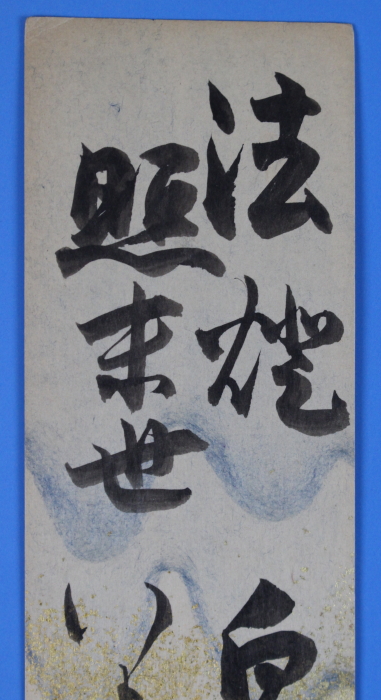 法燈
照末世